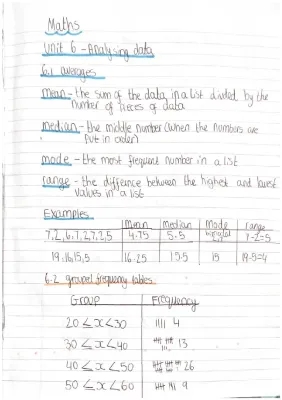 Maths
Unit 6 - Analysing data
6.1 averages
mean - the sum of the data in a list divided by the
number of pieces of data
median - the middle number (when the numbers are
put in order)
mode - the most frequent number in a list
range - the difference between the highest and lowest
values in a list
Examples
mean median mode range
7,2,6,7,2,7,2,5 4.75 5.5 7-2=5
19,16,15,5 16.25 15.5 15 19.5=4
6.2 grouped frequency tables
Group Frequency
20 < x < 30 4
30 < x < 40 13
40 < x < 50 26
50 < x < 60 9